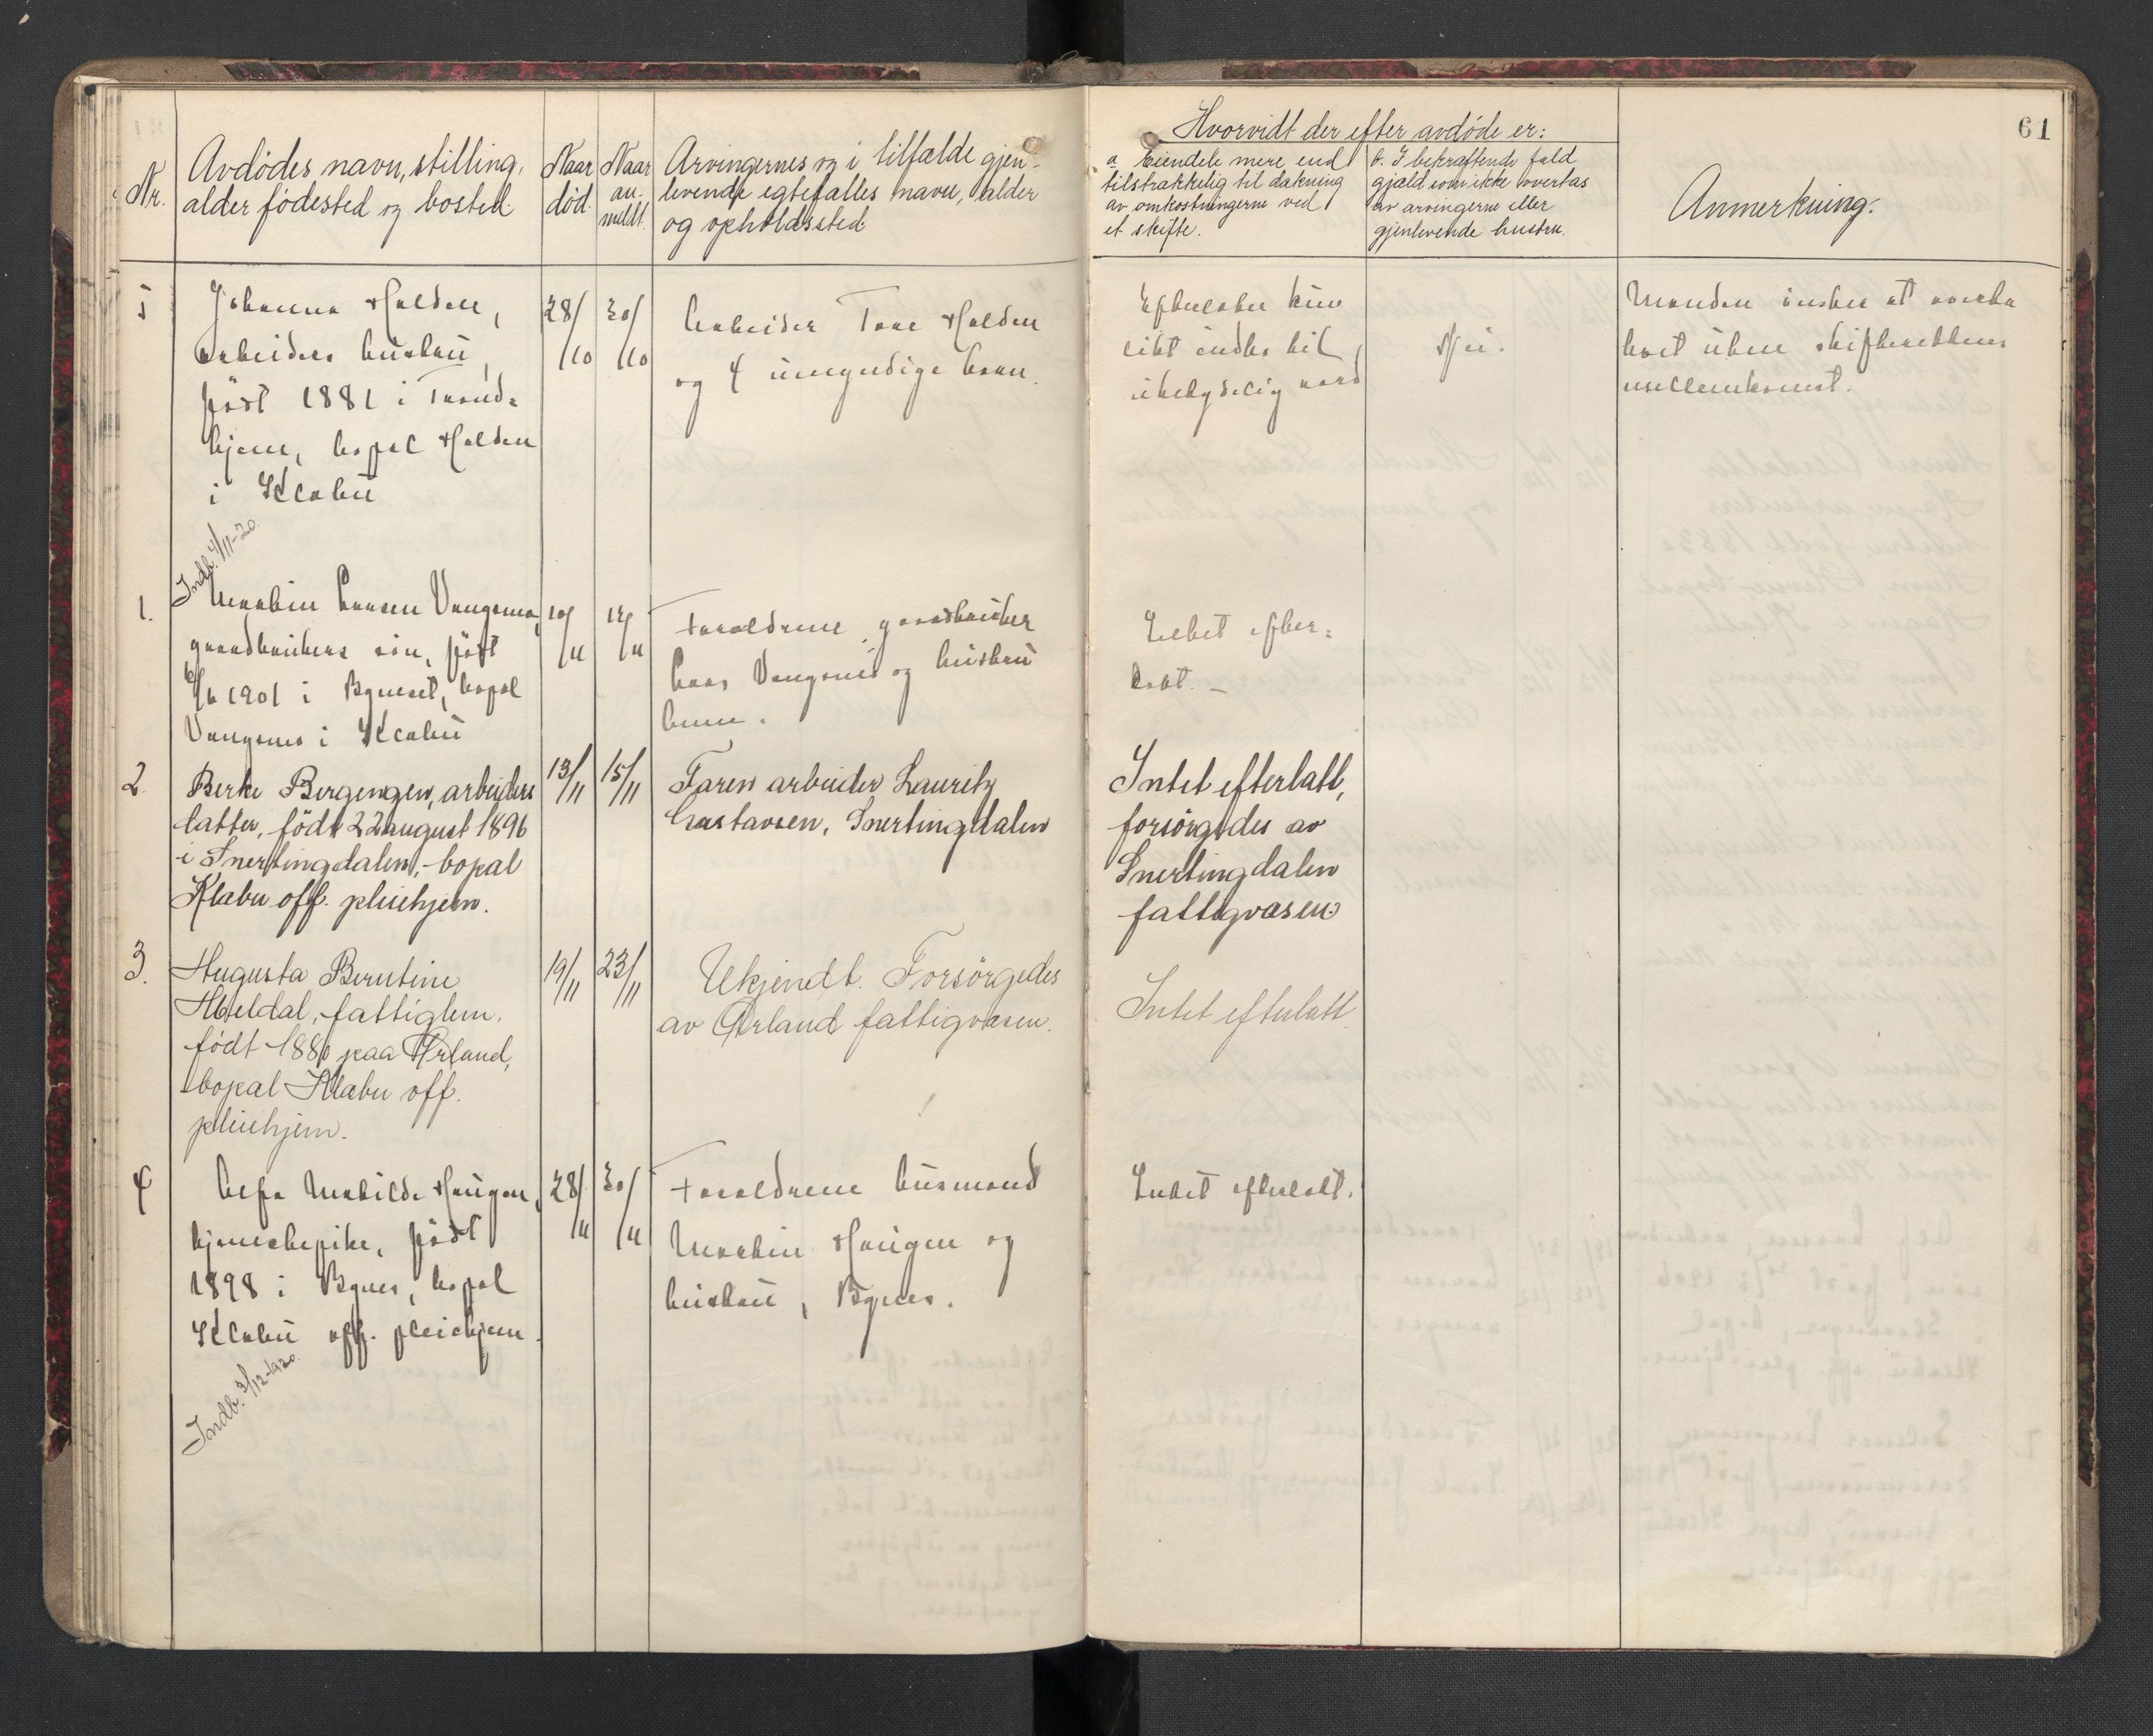 61
Nr.
Avdödes navn, stilling,
alder födested og bosted.
Naar
död.
Naar
an-
meldt.
Arvingernes og i tilfælde gjen-
levende egtefælles navn, alder
og opholdssted
Hvorvidt der efter avdöde er:
a eiendele mere end
tilstrækkelig til dækning
av omkostningerne ved
et skifte.
b. I bekræftende fald
gjæld som ikke overtas
av arvingerne eller
gjenlevende hustru.
Anmerkning.
5
Johanna Halden,
arbeiders hustru,
födt 1881 i Trond-
hjem, bopæl Halden
i Klæbu
28/10
30/10
Arbeider Tore Halden
og 4 umyndige barn.
Efterlater kun
litt indbo til
ubetydelig værd
Nei.
Manden önsker at overta
boet uten skifterettens
mellemkomst.
Indb. 4/11-20.
1.
Martin Larsen Vangsmo,
gaardbrukers sön, födt
1901 i Byneset, bopæl
Vangsmo i Klæbu
10/11
12/11
Foreldrene gaardbruker
Lars Vangsmo og hustru
Intet efter-
latt. -
2.
Berte Bergengen, arbeiders
datter, födt 22 august 1896
i Snertingdalen, - bopæl
Klæbu off. pleiehjem.
13/11
15/11
Faren arbeider Lauritz
Gustavsen, Snertingdalen
Intet efterlatt,
forsörgedes av
Snertingdalen
fattigvæsen
3.
Augusta Berntine
fattiglem,
födt 1880 paa Ørland,
bopæl Klæbu off.
pleiehjem.
19/11
23/11
Ukjendt. Forsörgedes
av Ørland fattigvæsen.
Intet efterlatt
4
Mathilde Haugen,
tjenestepike, födt
1898 i Bynes, bopæl
Klæbu off. pleiehjem.
28/11
30/11
Foreldrene husmand
Martin Haugen og
hustru, Bynes.
Intet efterlatt.
Indb. 3/12-1920.